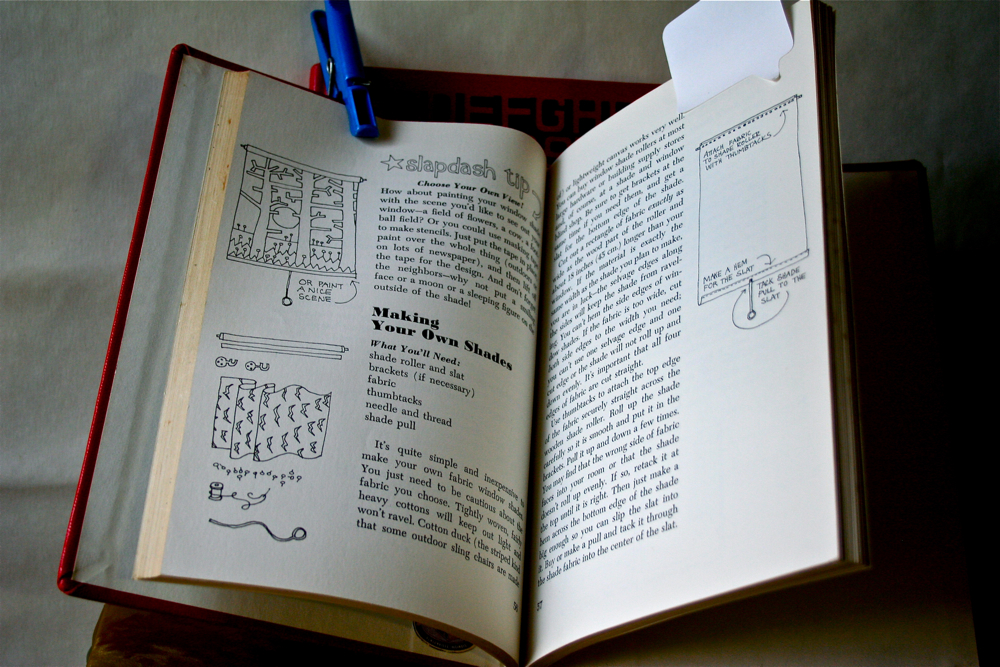 slapdash tip
Choose Your Own View!
How about painting your window
with the scene you'd like to see out
window—a field of flowers, a cow, a
ball field? Or you could use masking
to make stencils. Just put the tape
paint over the whole thing
on lots of newspaper), and then lift
the tape for the design. And don't forget
the neighbors—why not put a
face or a moon or a sleeping figure on the
outside of the shade!
OR PAINT
A NICE
SCENE
Making
Your Own Shades
What You'll Need:
shade roller and slat
brackets (if necessary)
fabric
thumbtacks
needle and thread
shade pull
It's quite simple and inexpensive to
make your own fabric window shades.
You just need to be cautious about the
fabric you choose. Tightly woven, fairly
heavy cottons will keep out light and
won't ravel. Cotton duck (the striped kind
that some outdoor sling chairs are made
of) or lightweight canvas works very well.
buy window shade rollers at most
hardware or building supply stores
of course, at a shade and window
Be sure to get brackets at the
if you need them, and get a
for the bottom edge of the shade.
Cut out a rectangle of fabric exactly as
wide as the wood part of the roller and
about 18 inches (45 cm) longer than your
window. If the material is exactly the
same width as the shade you plan to make,
you are in luck—the selvage edges along
the sides will keep the shade from ravel-
ling. You can't hem the side edges of win-
dow shades. If the fabric is too wide, cut
both side edges to the width you need;
you can't use one selvage edge and one
cut edge or the shade will not roll up and
down evenly. It's important that all four
edges of fabric are cut straight.
Use thumbtacks to attach the top edge
of the fabric securely straight across the
wooden shade roller. Roll up the shade
carefully so it is smooth and put it in the
brackets. Pull it up and down a few times.
You may find that the wrong side of fabric
faces into your room or that the shade
doesn't roll up evenly. If so, retack it at
the top until it is right. Then just make a
hem across the bottom edge of the shade
big enough so you can slip the slat into
it. Buy or make a pull and tack it through
the shade fabric into the center of the slat.
37
ATTACH FABRIC
TO SHADE ROLLER
WITH THUMBTACKS
MAKE A HEM
FOR THE SLAT
TACK SHADE
PULL TO THE
SLAT